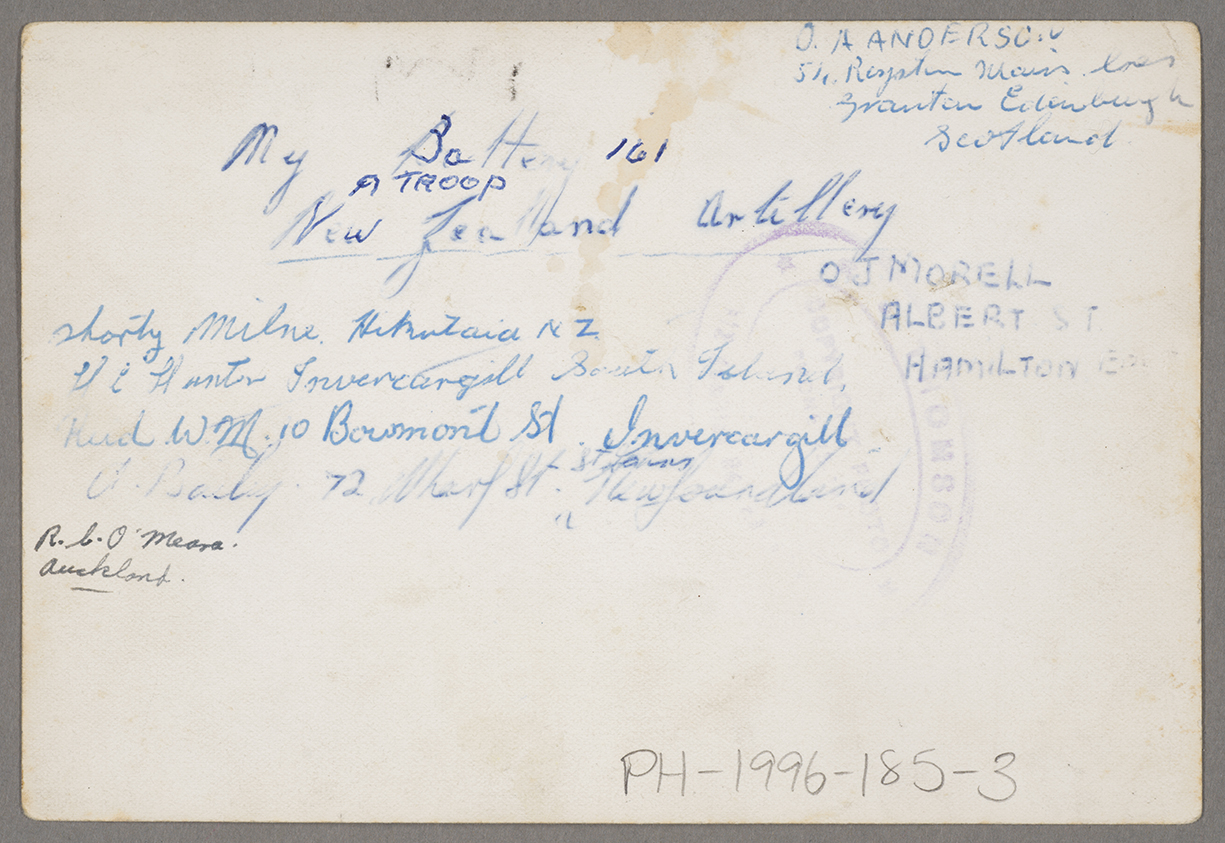 O. A ANDERSON
51, Royston Mains
Granton Edinburgh
Scotland
My Battery 161
A TROOP
New Zealand Artillery
O J MORELL
ALBERT ST
HAMILTON EAST
Shorty Milne. Hikutaia N Z
Hunter Invercargill South Island,
W.M. 10 Bowmont St. Invercargill
St Johns
A. Baily. 72 Wharf St. Newfoundland
R. C. O'Meara.
Auckland.
PH-1996-185-3